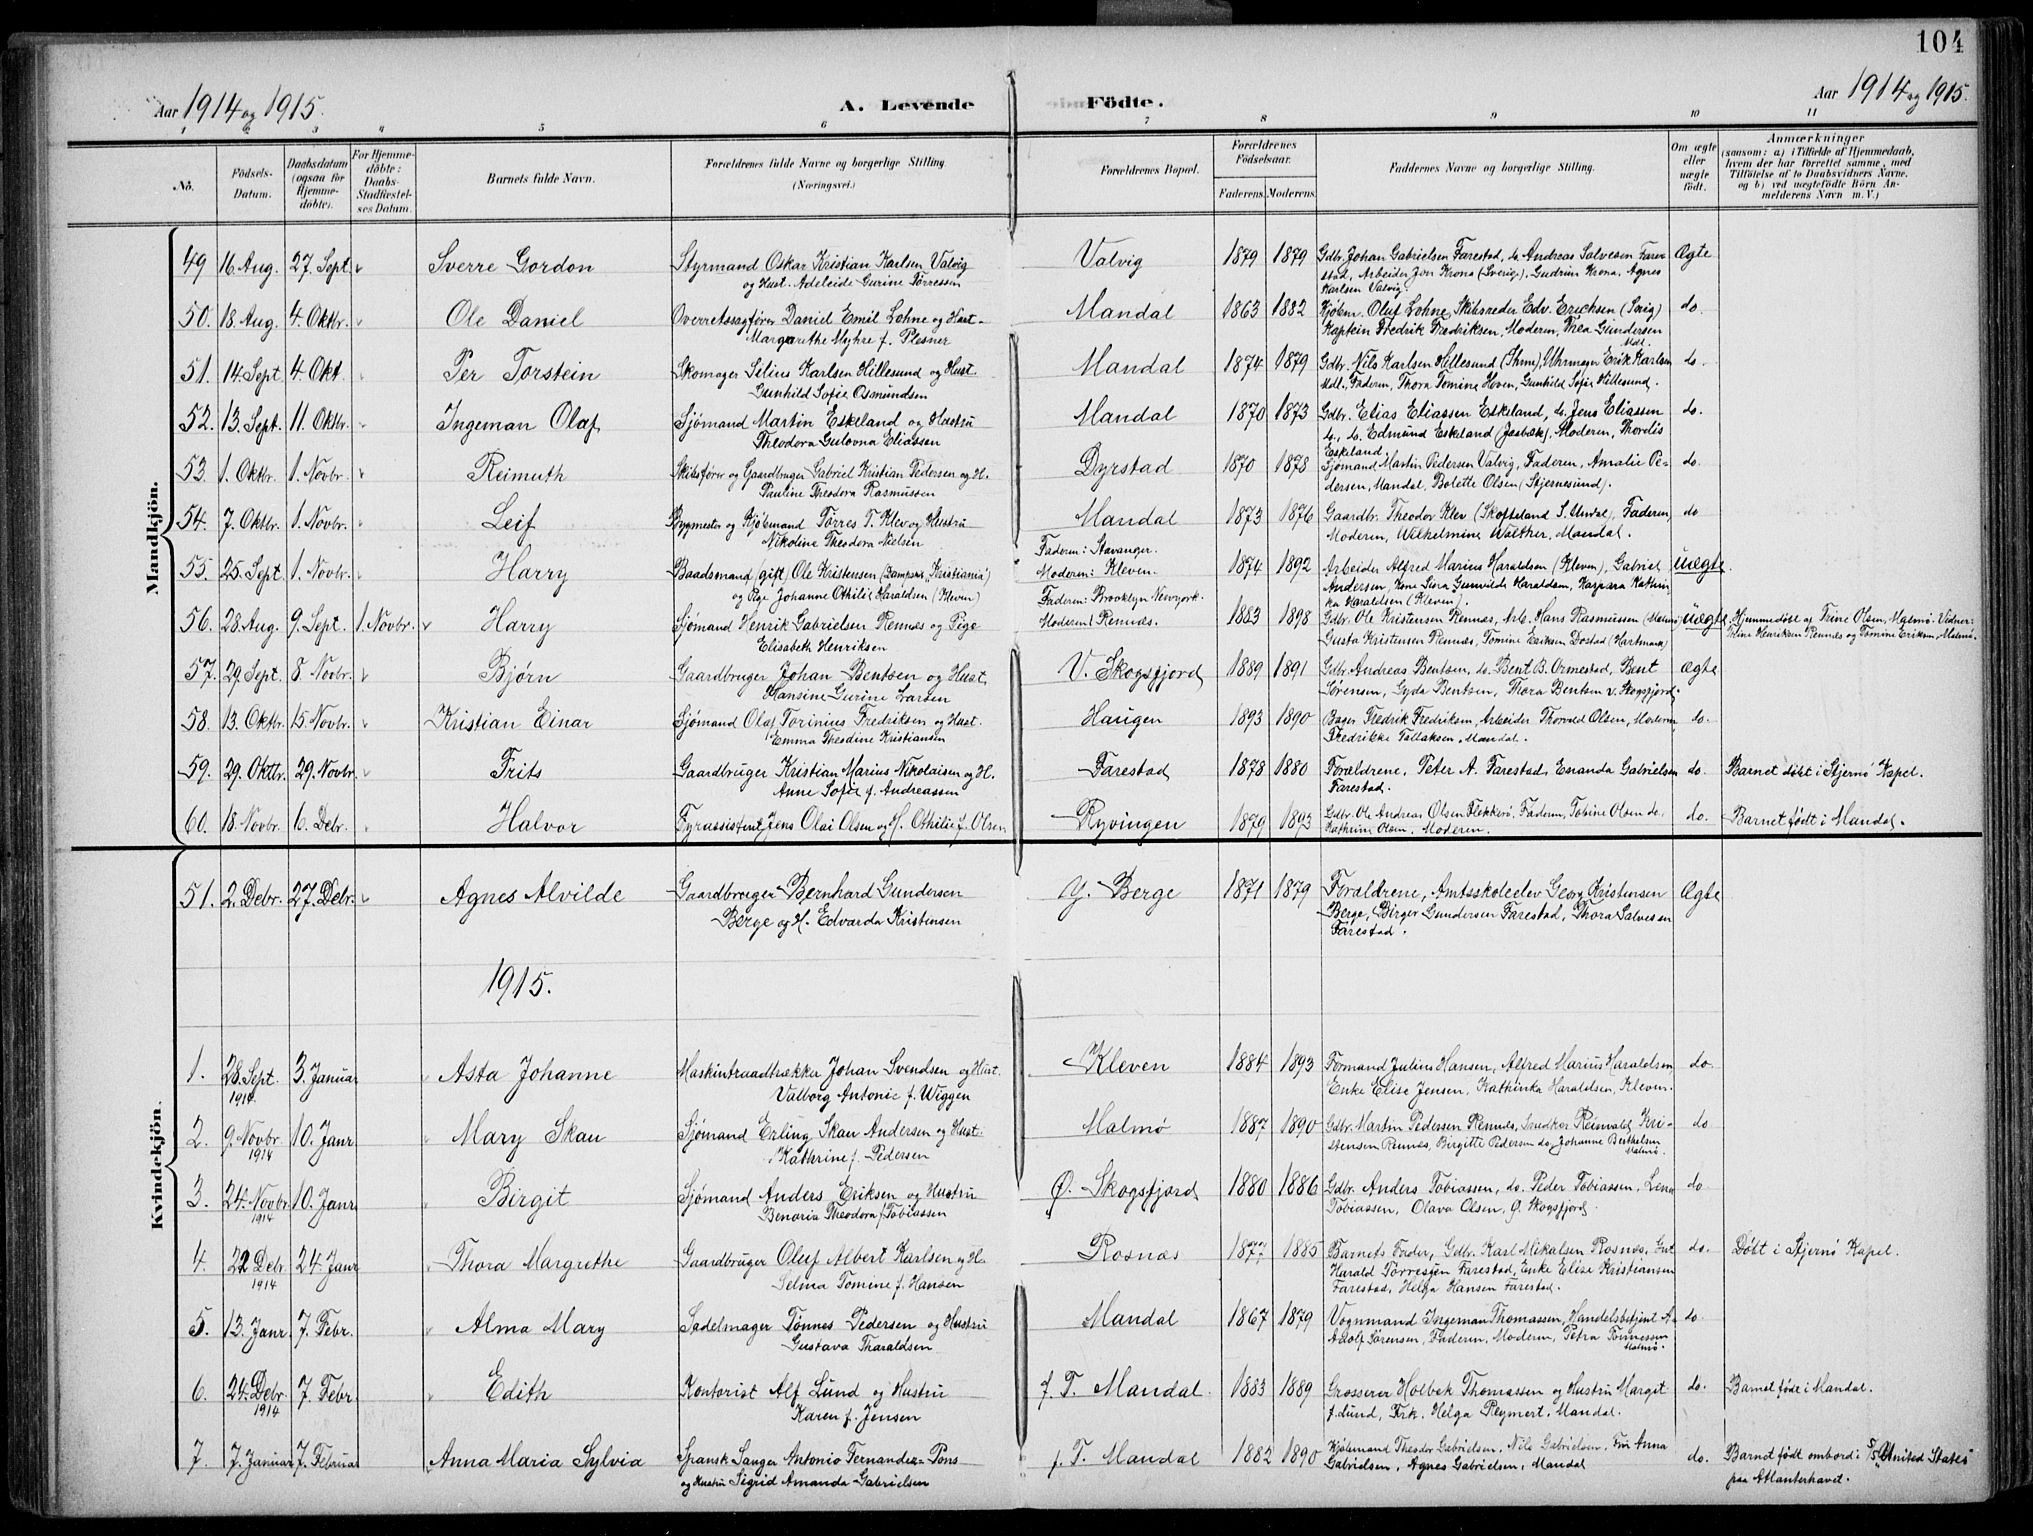 104
Aar 1914 og 1915.
A. Levende Fødte.
Aar 1914 og 1915.
1 2 3 4 5 6 7 8 9 10 11
No.
Fødsels-Datum.
Daabsdatum (ogsaa for Hjemmedøbte).
For Hjemmedøbte: Daabs-Stadfæstelses Datum.
Barnets fulde Navn.
Forældrenes fulde Navne og borgerlige Stilling. (Næringsvei.)
Forældrenes Bopæl.
Forældrenes Fødselsaar.
Faderens. Moderens.
Faddernes Navne og borgerlige Stilling.
Om ægte eller uægte født.
Anmærkninger
(saasom: a) i Tilfælde af Hjemmedaab, hvem der har forrettet samme, med Tilføielse af to Daabsvidners Navne. og b) ved uægtefødte Børn Anmelderens Navn m. V.)
Mandkjön.
49 16 Aug. 27. Sept. Sverre Gordon Styrmand Oskar Kristian Karlsen Valvig Valvig 1879 1879 Gdbr. Johan Gabrielsen Farestad, do. Andreas Salvesen Fare- Ægte
og Hust. Adeleide Gurine Torressen stad, Arbeider Jon Krona (Sverig), Gudrun Krona, Agnes
Karlsen Valvig.
50. 18. Aug. 4. Oktbr. Ole Daniel Overretssagfører Daniel Emil Lohne og Hust. Mandal 1863 1882 Kjøbm. Oluf Lohne, Skibsreder Edv. Erichsen do.
Margarethe Myhre f. Plesner Kaptein Fredrik Fredriksen, Moderen, Thea Gundersen
Mdl.
51. 14. Sept 4. Okt. Per Torstein Skomager Selius Karlsen Hillesund og Hust. Mandal 1874 1879 Gdbr. Nils Karlsen Hillesund Uhrmager Erik Karlsen do.
Gunhild Sofie Osmundsen Mdl., Faderen, Thora Tomine Hoven, Gunhild Sofie Hillesund.
52. 13. Sept. 11. Oktbr. Ingeman Olaf Sjømand Martin Eskeland og Hustru Mandal 1870 1873 Gdbr. Elias Eliassen Eskeland, do. Jens Eliassen do.
Theodora Gulovna Eliassen do., do. Edmund Eskeland (Jaabæk), Moderen, Thordis
Eskeland.
53. 1. Oktbr. 1. Novbr. Reimuth Skibsfører og Gaardbruger Gabriel Kristian Pedersen og H. Dyrstad 1870 1878 Sjømand Martin Pedersen Valvig, Faderen, Amalie Pe- do.
Pauline Theodora Rasmussen dersen, Mandal, Bolette Olsen (Stjernesund).
54. 7. Oktbr. 1. Novbr. Leif Bygmester og Kjøbmand Torres T. Klev og Hustru Mandal 1873 1876 Gaardbr. Theodor Klev (Skofteland S. Undal), Faderen, do
Nikoline Theodora Nielsen Moderen, Wilhelmine Walther, Mandal.
55. 25. Sept. 1. Novbr. Harry Baadsmand (gift) Ole Kristensen Faderen: Stavanger. Moderen: Kleven. 1874 1892 Arbeider Alfred Marius Haraldsen (Kleven), Gabriel uægte
og Pige Johanne Othilie Haraldsen (Kleven) Andersen, Kone Sina Gunvilde Haraldsen, Kaspara Kathin-
ka Haraldsen (Kleven).
56. 28. Aug. 9. Sept. 1. Novbr. Harry Sjømand Henrik Gabrielsen Rennæs og Pige Faderen: Brooklyn Newyork. Moderen: Rennæs. 1883 1898 Gdbr. Ole Kristensen Rennæs, Arb. Hans Rasmussen (Malmø) uægte Hjemmedøbt og Trine Olsen, Malmø. Vidner:
Elisabeth Henriksen Gusta Kristensen Rennæs, Tomine Eriksen Dostad (Hartmark) Trine Henriksen Rennæs og Tomine Eriksen, Malmø.
57. 29. Sept. 8. Novbr. Bjørn Gaardbruger Johan Bentsen og Hust. V. Skogsfjord 1889 1891 Gdbr. Andreas Bentsen, do. Bent B. Ormestad, Bent Ægte
Hansine Gurine Larsen Sørensen, Gyda Bentsen, Thora Bentsen V. Skogsfjord.
58. 13. Oktbr. 15. Novbr. Kristian Einar Sjømand Olaf Torinius Fredriksen og Hust. Haugen 1893 1890 Bager Fredrik Fredriksen, Arbeider Thorvald Olsen, Moderen, do.
Emma Theodine Kristiansen Fredrikke Tallaksen, Mandal.
59. 29. Oktbr. 29. Novbr. Frits Gaardbruger Kristian Marius Nikolaisen og H. Farestad 1878 1880 Forældrene, Peter A. Farestad, Esranda Gabrielsen do. Barnet døbt i Stjernø Kapel.
Anne Sofie f. Andreassen Farestad.
60. 18. Novbr. 6. Debr. Halvor Fyrassistent Jens Olai Olsen og H. Othilie f. Olsen Ryvingen 1879 1893 Gdbr. Ole Andreas Olsen Flekkerø, Faderen, Tobine Olsen do., do. Barnet født i Mandal.
Kathrine Olsen, Moderen.
Kvindekjön.
51. 2. Debr. 27. Debr. Agnes Alvilde Gaardbruger Bernhard Gundersen Y. Berge 1871 1879 Forældrene, Amtsskoleelev Georg Kristensen Ægte
Berge og H. Edvarda Kristensen Berge, Birger Gundersen Farestad, Thora Salvesen
Farestad.
1915.
1. 28. Sept. 1914 3. Januar Asta Johanne Maskintraadtrækker Johan Svendsen og Hust. Kleven 1884 1893 Formand Julius Hansen, Alfred Marius Haraldsen do.
Valborg Antonie f. Wiggen Enke Elise Jensen, Kathinka Haraldsen, Kleven.
2. 9. Novbr. 1914 10. Janr Mary Skau Sjømand Erling Skau Andersen og Hust. Malmø 1887 1890 Gdbr. Martin Pedersen Rennæs, Snedker Reinvald Kri- do
Kathrine f. Pedersen stensen Rennæs, Birgitte Pedersen do, Johanne Berthelsen
Malmø.
3. 24. Novbr 1914 10. Janr Birgit Sjømand Anders Eriksen og Hustru Ø. Skogsfjord 1880 1886 Gdbr. Anders Tobiassen, do. Peder Tobiassen, Lena do.
Benaria Theodora f. Tobiassen Tobiassen, Olava Olsen, Ø. Skogsfjord.
4. 22 Debr. 1914 24. Janr Thora Margrethe Gaardbruger Oluf Albert Karlsen og H. Rosnæs 1877 1885 Barnets Fader, Gdbr. Karl Mikalsen Rosnæs, Gut do. Døbt i Stjernø Kapel.
Selma Tomine f. Hansen Harald Torresen Farestad, Enke Elise Kristiansen
Farestad, Helga Hansen Farestad.
5. 13. Janr. 7. Febr. Alma Mary Sadelmager Tønnes Pedersen og Hustru Mandal 1867 1879 Vognmand Ingeman Thomassen, Handelsbetjent A- do
Gustava Tharaldsen Adolf Sørensen, Faderen, Moderen, Petra Tønnessen
Malmø.
6. 24. Debr. 1914 7. Febr. Edith Kontorist Alf Lund og Hustru f. T. Mandal. 1883 1889 Grosserer Holbek Thomassen og Hustru Margit do. Barnet føde i Mandal.
Karen f. Jensen f. Lund, Frk. Helga Reymert, Mandal.
7. 7. Januar 7. Februar Anna Maria Sylvia Spansk Sanger Antonio Fernandez-Pons f. T. Mandal 1882 1890 Kjøbmand Theodor Gabrielsen, Nils Gabrielsen, Fru Anna do. Barnet født ombord i S/S "United States"
og Hustru Sigrid Amanda Gabrielsen Gabrielsen, Agnes Gabrielsen, Mandal paa Atlanterhavet.